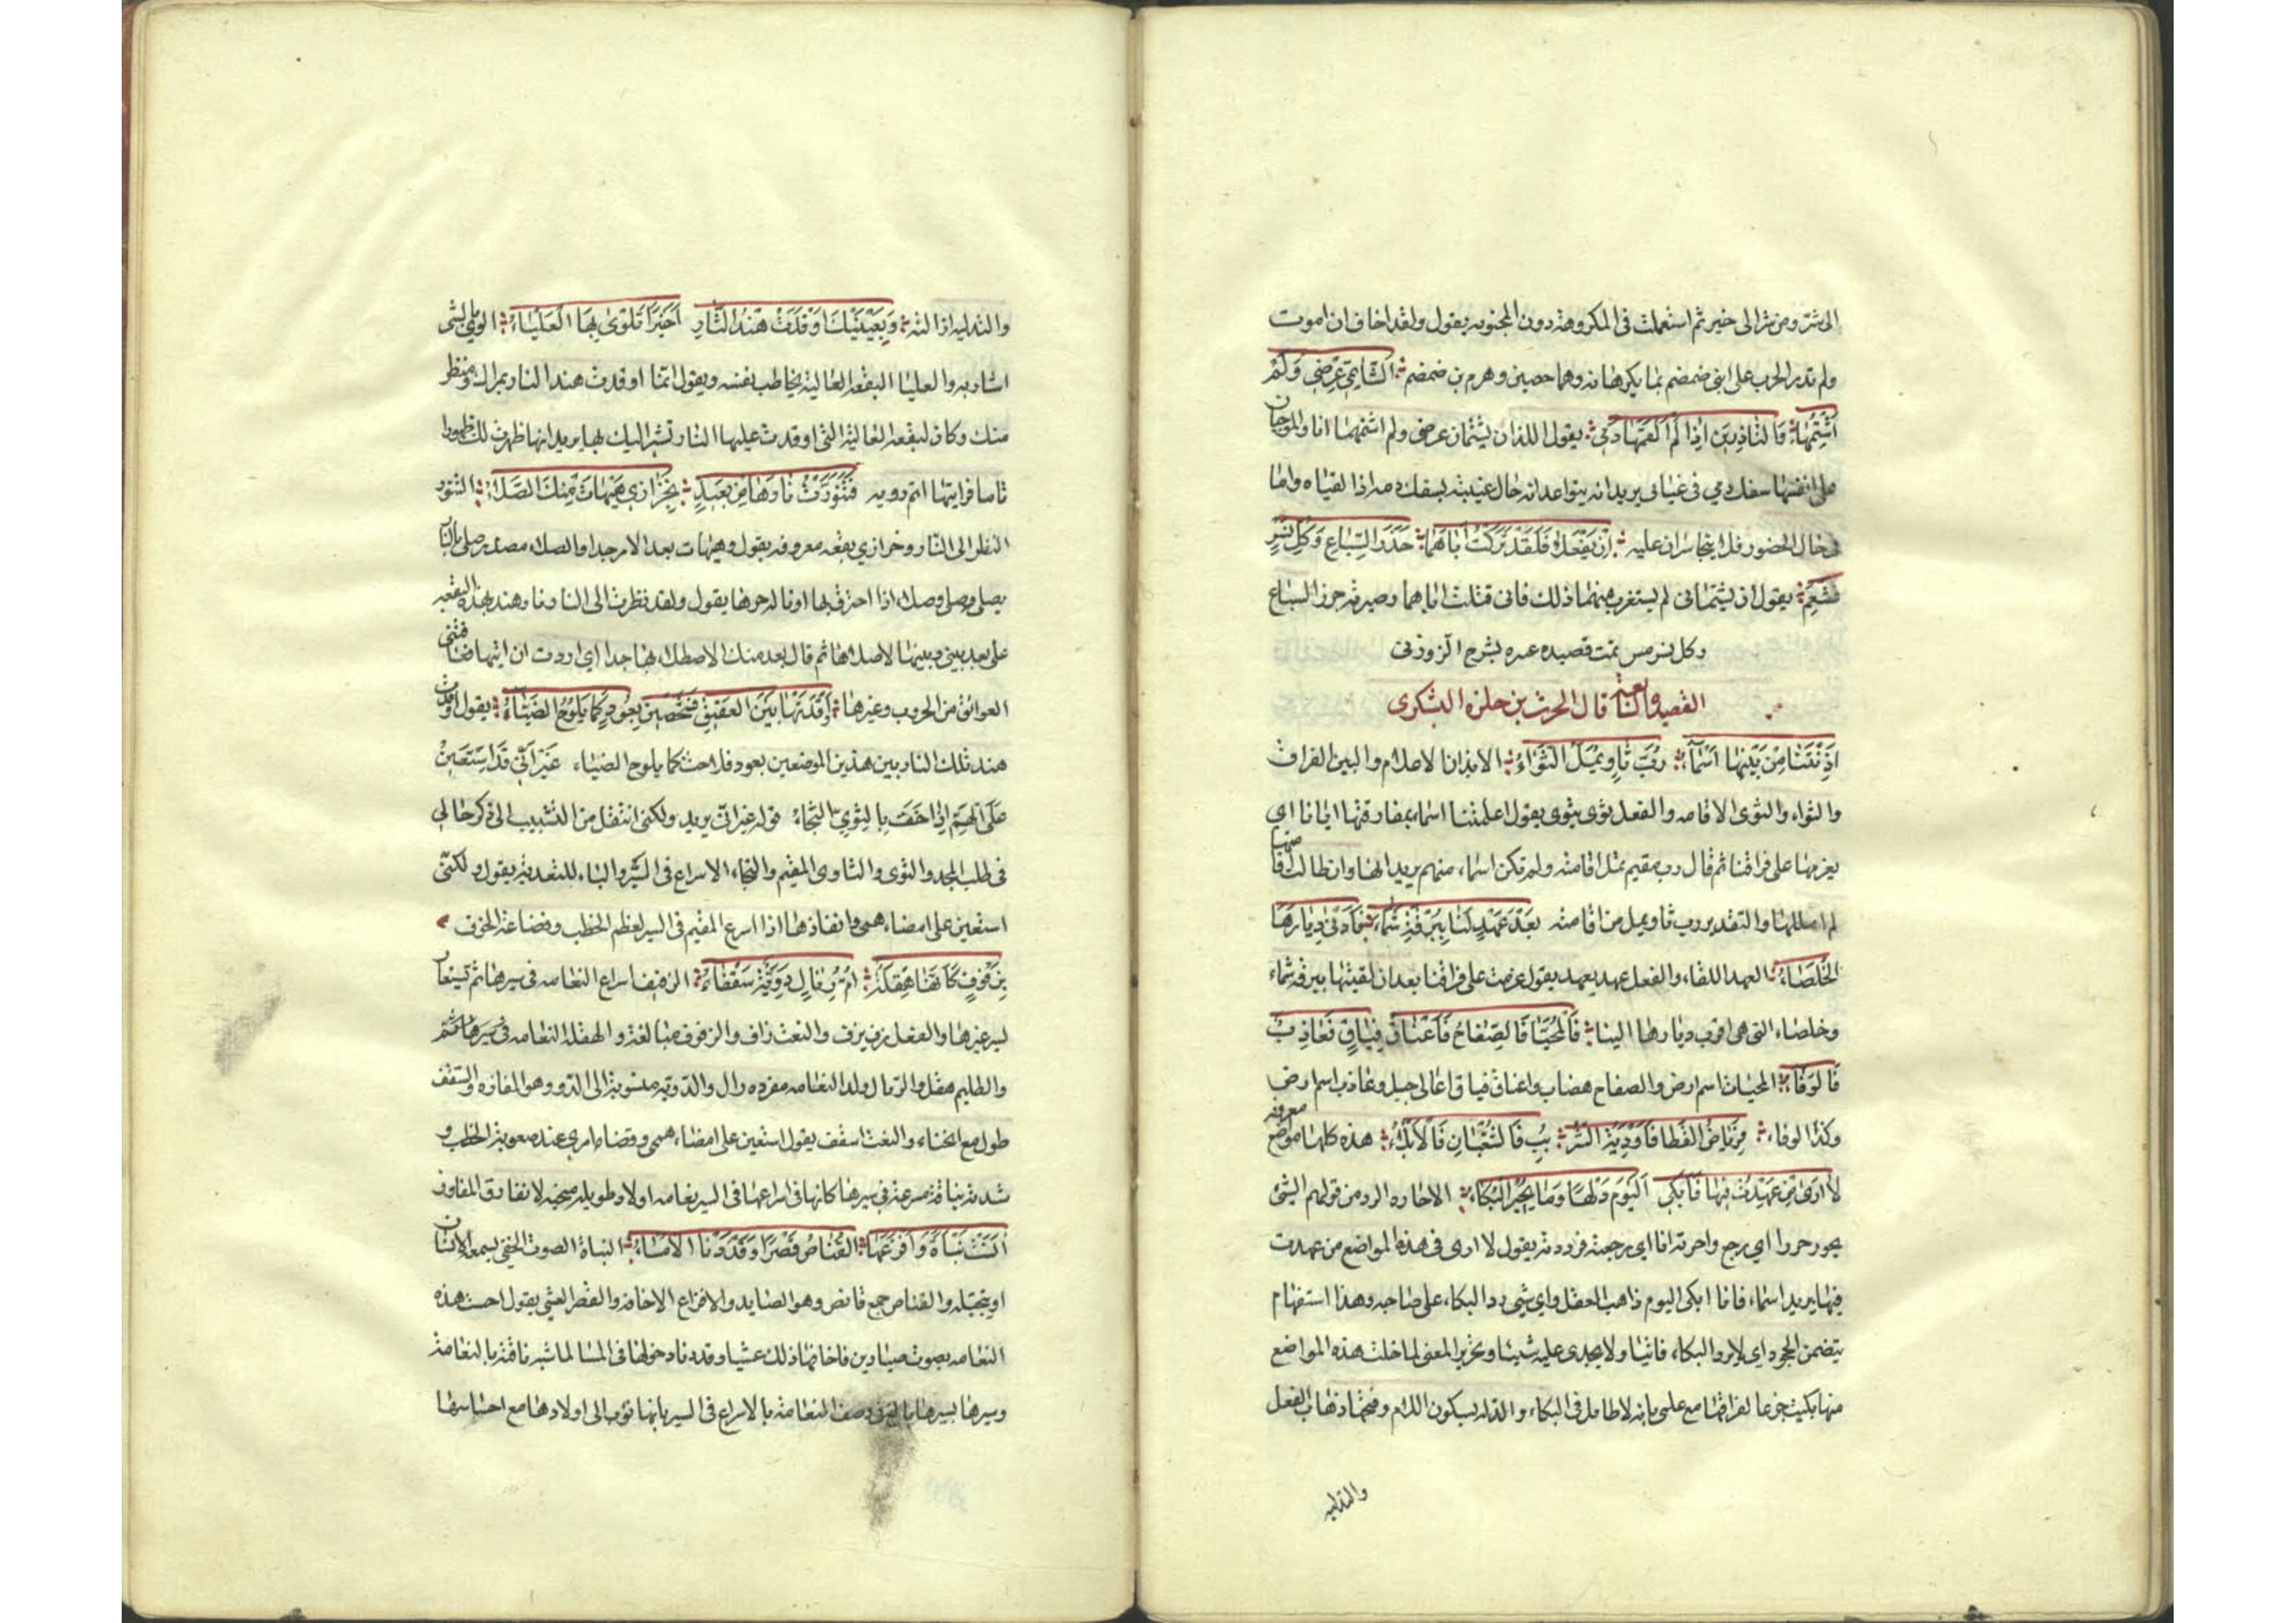 الى شر ومن شر الى خير ثم استعملت فى المكروهة دون المحبوبة يقول ولقد اخاف ان اموت
ولم تدر الحرب على ابنى ضمضم بما يكرهانه وهما حصين وهرم بن ضمضم الشَّاتِمَي عِرْضِي وَلَمْ
اَشْتِمْهُمَا وَالنَّاذِرَيْنِ اِذَا لَمْ اَلْقَهُمَا دَمِي يقول اللذان يشتمان عرضى ولم اشتمهما انا والموجبان
على انفسهما سفك دمي فى غيبانى يريد انه يتواعدانه حال غيبته بسفك دمه اذا لقياه واما
فى حال الحضور فلا يتجاسران عليه اِنْ يَفْعَلَا فَلَقَدْ تَرَكْتُ اَبَاهُمَا جَزَرَ السِّبَاعِ وَكُلِّ نَسْرٍ
قَشْعَمِ يقول ان يشتمانى لم يستغرب منهما ذلك فانى قتلت اباهما وصيرته جزر السباع
وكل نسر مسن تمت قصيده عنتره بشرح الزوزنى
القصيدة السابعة قال الحرث بن حلزه اليشكرى
اٰذَنَتْنَا بِبَيْنِهَا اَسْمَاءُ رُبَّ ثَاوٍ يُمَلُّ الثَّوَاءُ الايذان الاعلام والبين الفراق
والثواء والثوى الاقامه والفعل ثوى يثوى يقول اعلمتنا اسماء بمفارقتها ايانا اي
بعزمها على فراقنا ثم قال رب مقيم تمل اقامته ولم تكن اسماء منهم يريد انها وان طالت اقامتها
لم املها والتقدير رب ثاو يمل من اقامته بَعْدَ عَهْدٍ لَنَا بِبُرْقَةِ شَمَّاءَ فَاَدْنٰى دِيَارِهَا
الْخَلْصَاءُ العهد اللقاء والفعل عهد يعهد يقول عزمت على فراقنا بعد ان لقيتها ببرقة شماء
وخلصاء التى هى اقرب ديارها الينا فَالْمُحَيَّاةُ فَالصِّفَاحُ فَاَعْنَاقُ فِتَاقٍ فَعَاذِبٌ
فَالْوَفَاءُ المحياة اسم ارض والصفاح هضاب واعناق فياق اعالى جبل وعاذب اسم ارض
وكذا الوفاء فَرِيَاضُ الْقَطَا فَاَوْدِيَةُ الشُّرْبُبِ فَالشُّعْبَتَانِ فَالْاَبْلَاءُ هذه كلها مواضع معروفه
لَا اَرٰى مَنْ عَهِدْتُ فِيهَا فَاَبْكِي الْيَوْمَ دَلْهًا وَمَا يُحِيرُ الْبُكَاءُ الاحاره الرد من قولهم الشئ
يحور حورا اي رجع واحرته انا اي رجعته فرددته يقول لا ارى فى هذه المواضع من عهدت
فيها يريد اسماء فانا ابكى اليوم ذاهب العقل واي شي رد البكاء على صاحبه وهذا استفهام
يتضمن الجحود اي لا يرد البكاء فائتا ولا يجدى عليه شيئا وتحرير المعنى لما خلت هذه المواضع
منها بكيت جزعا لفراقها مع علمى بانه لا طائل فى البكاء والدله بسكون اللام وفتحها ذهاب العقل
والتدليه
والتدليه ازالته وَبِعَيْنَيْكَ اَوْقَدَتْ هِنْدُ النَّارَ اَخِيرًا تُلْوِى بِهَا الْعَلْيَاءُ الوى بالشى
اشار به والعليا البقعه العالية يخاطب نفسه ويقول انما اوقدت هند النار بمراك ومنظر
منك وكان البقعة العالية التى اوقدت عليها النار تشير اليك بها يريد انها ظهرت لك ظهورا
تاما فرايتها اتم رويه فَتَنَوَّرْتُ نَارَهَا مِنْ بَعِيدٍ بِخَزَازَي هَيْهَاتَ مِنْكَ الصِّلَاءُ التنور
النظر الى النار وخزازي بقعه معروفه يقول وهيهات بعد الامر جدا والصلاء مصدر صلى بالنار
يصلى صلى وصلاء اذا احترق بها او ناله حرها يقول ولقد نظرت الى النار نار هند بهذه البقعه
على بعد بينى وبينها لاصلاها ثم قال بعد منك الاصطلاء بها جدا اي اردت ان اتيها فعاقتنى
العوائق من الحروب وغيرها اَوْقَدَتْهَا بَيْنَ الْعَقِيقِ فَشَخْصَيْنِ بِعُودٍ كَمَا يَلُوحُ الضِّيَاءُ يقول اوقدت
هند تلك النار بين هذين الموضعين بعود فلاحت كما يلوح الضياء غَيْرَ اَنِّي قَدْ اَسْتَعِينُ
عَلَى الْهَمِّ اِذَا خَفَّ بِالثَّوِيِّ النَّجَاءُ قوله غير انى يريد ولكنى انتقل من التشبيب الى ذكر حالى
فى طلب المجد والثوى والثاوى المقيم والنجاء الاسراع فى السير والباء للتعدية يقول ولكنى
استعين على امضاء همى وانفاذها اذا اسرع المقيم فى السير لعظم الخطب وفضاعة الخوف
بِزَفُوفٍ كَاَنَّهَا هِقْلَةٌ اُمُّ رِئَالٍ دَوِّيَّةٌ سَقْفَاءُ الزفيف اسراع النعامه فى سيرها ثم يستعار
لسير غيرها والفعل زف يزف والنعت زاف والزفوف مبالغة والهقلة النعامه فى سيرها ثم
والظليم هقل والرئال ولد النعامه مفرده رال والدوية منسوبة الى الدو وهو المفازه والسقف
طول مع انحناء والنعت اسقف يقول استعين على امضاء همى وقضاء امري عند صعوبة الخطب و
شدته بناقة مسرعة فى سيرها كانها فى اسراعها فى السير نعامه لها اولاد طويله منحنيه لا تفارق المفاوز
اٰنَسَتْ نَبْاَةً وَاَفْزَعَهَا الْقُنَّاصُ قَصْرًا وَقَدْ دَنَا الْاِمْسَاءُ النباة الصوت الخفى يسمعه الانسان
او يتخيله والقناص جمع قانص وهو الصايد والافزاع الاخافة والقصر العشي يقول احست هذه
النعامه بصوت صيادين فاخافها ذلك عشيا وقد دنا دخولها فى المسا لما شبه ناقته بالنعامة
وسيرها بسيرها بالغ فى وصف النعامة بالاسراع فى السير بانها تؤب الى اولادها مع احساسها